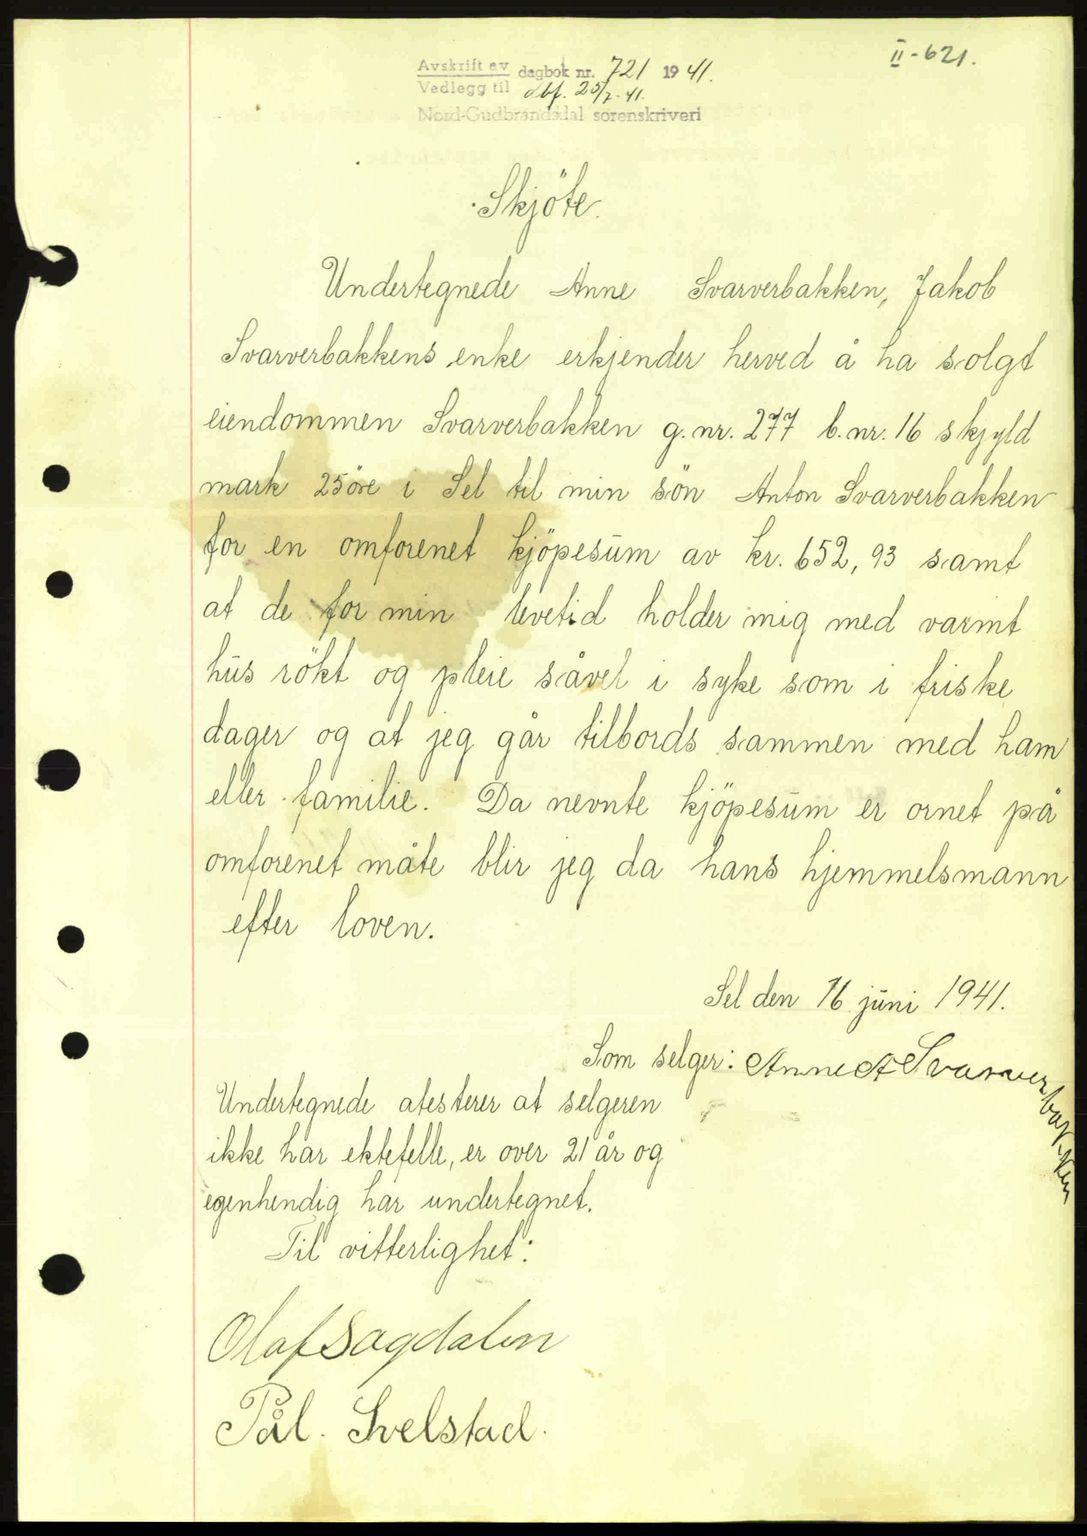 II-621.
Avskrift av dagbok nr. 721 1941.
Vedlegg til dbf. 25/7-41.
Nord-Gudbrandsdal sorenskriveri
Skjöte.
Undertegnede Anne Svarverbakken, Jakob
Svarverbakkens enke erkjender herved å ha solgt
eiendommen Svarverbakken g.nr. 277 b.nr. 16 skjyld
mark 25 öre i Sel til min sön Anton Svarverbakken
for en omforenet kjöpesum av kr. 652,93 samt
at de for min levetid holder mig med varmt
hus rökt og pleie såvel i syke som i friske
dager og at jeg går tilbords sammen med ham
eller familie. Da nevnte kjöpesum er ornet på
omforenet måte blir jeg da hans hjemmelsmann
efter loven.
Sel den 16 juni 1941.
Som selger: Anne A Svarverbakken
Undertegnede atesterer at selgeren
ikke har ektefelle, er over 21 år og
egenhendig har undertegnet.
Til vitterlighet:
Olaf Sagdalen
Pål. Svelstad.